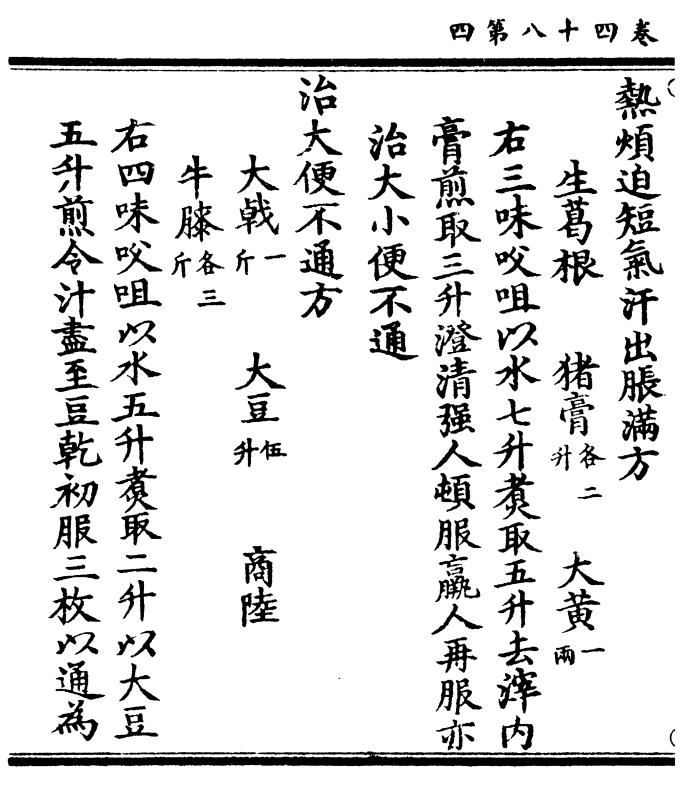 卷四十八第四
熱煩迫短氣汗出脹滿方
生葛根 猪膏各二升 大黄一兩
右三味㕮咀以水七升煑取五升去滓内
膏煎取三升澄清强人頓服羸人再服亦
治大小便不通
治大便不通方
大戟一斤 大豆伍升 商陸
牛膝各三斤
右四味㕮咀以水五升煑取二升以大豆
五升煎令汁盡至豆乾初服三枚以通為